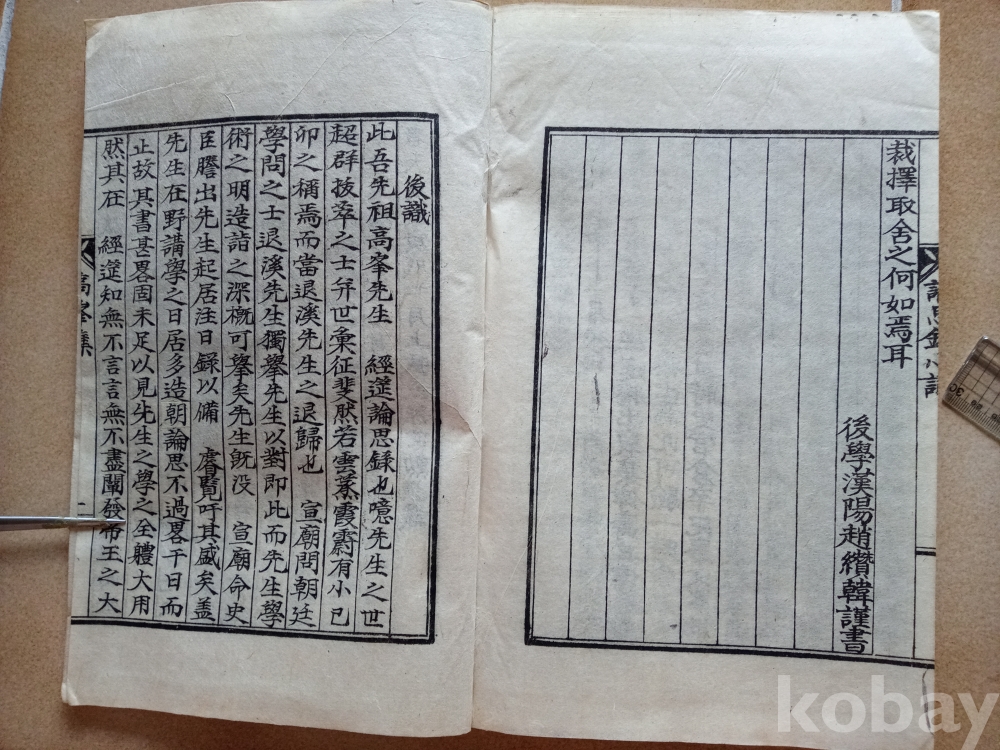 裁擇取舍之何如焉耳
後學漢陽趙纘韓謹書
後識
此吾先祖高峯先生 經筵論思錄也噫先生之世
超群拔萃之士幷世彙征斐然若雲蒸霞蔚有小己
卯之稱焉而當退溪先生之退歸也 宣廟問朝廷
學問之士退溪先生獨擧先生以對卽此而先生學
術之明造詣之深槪可擧矣先生旣没 宣廟命史
臣謄出先生起居注日錄以備 睿覽吁其盛矣盖
先生在野講學之日居多造朝論思不過畧干日而
止故其書甚畧固未足以見先生之學之全軆大用
然其在 經筵知無不言言無不盡闡發帝王之大
高峯集
kobay